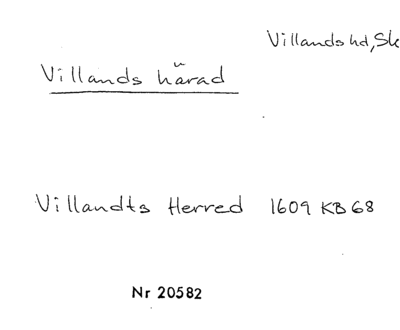 Villands hd, Sk
Villands härad
Villandts Herred 1609 KB 68
Nr 20582